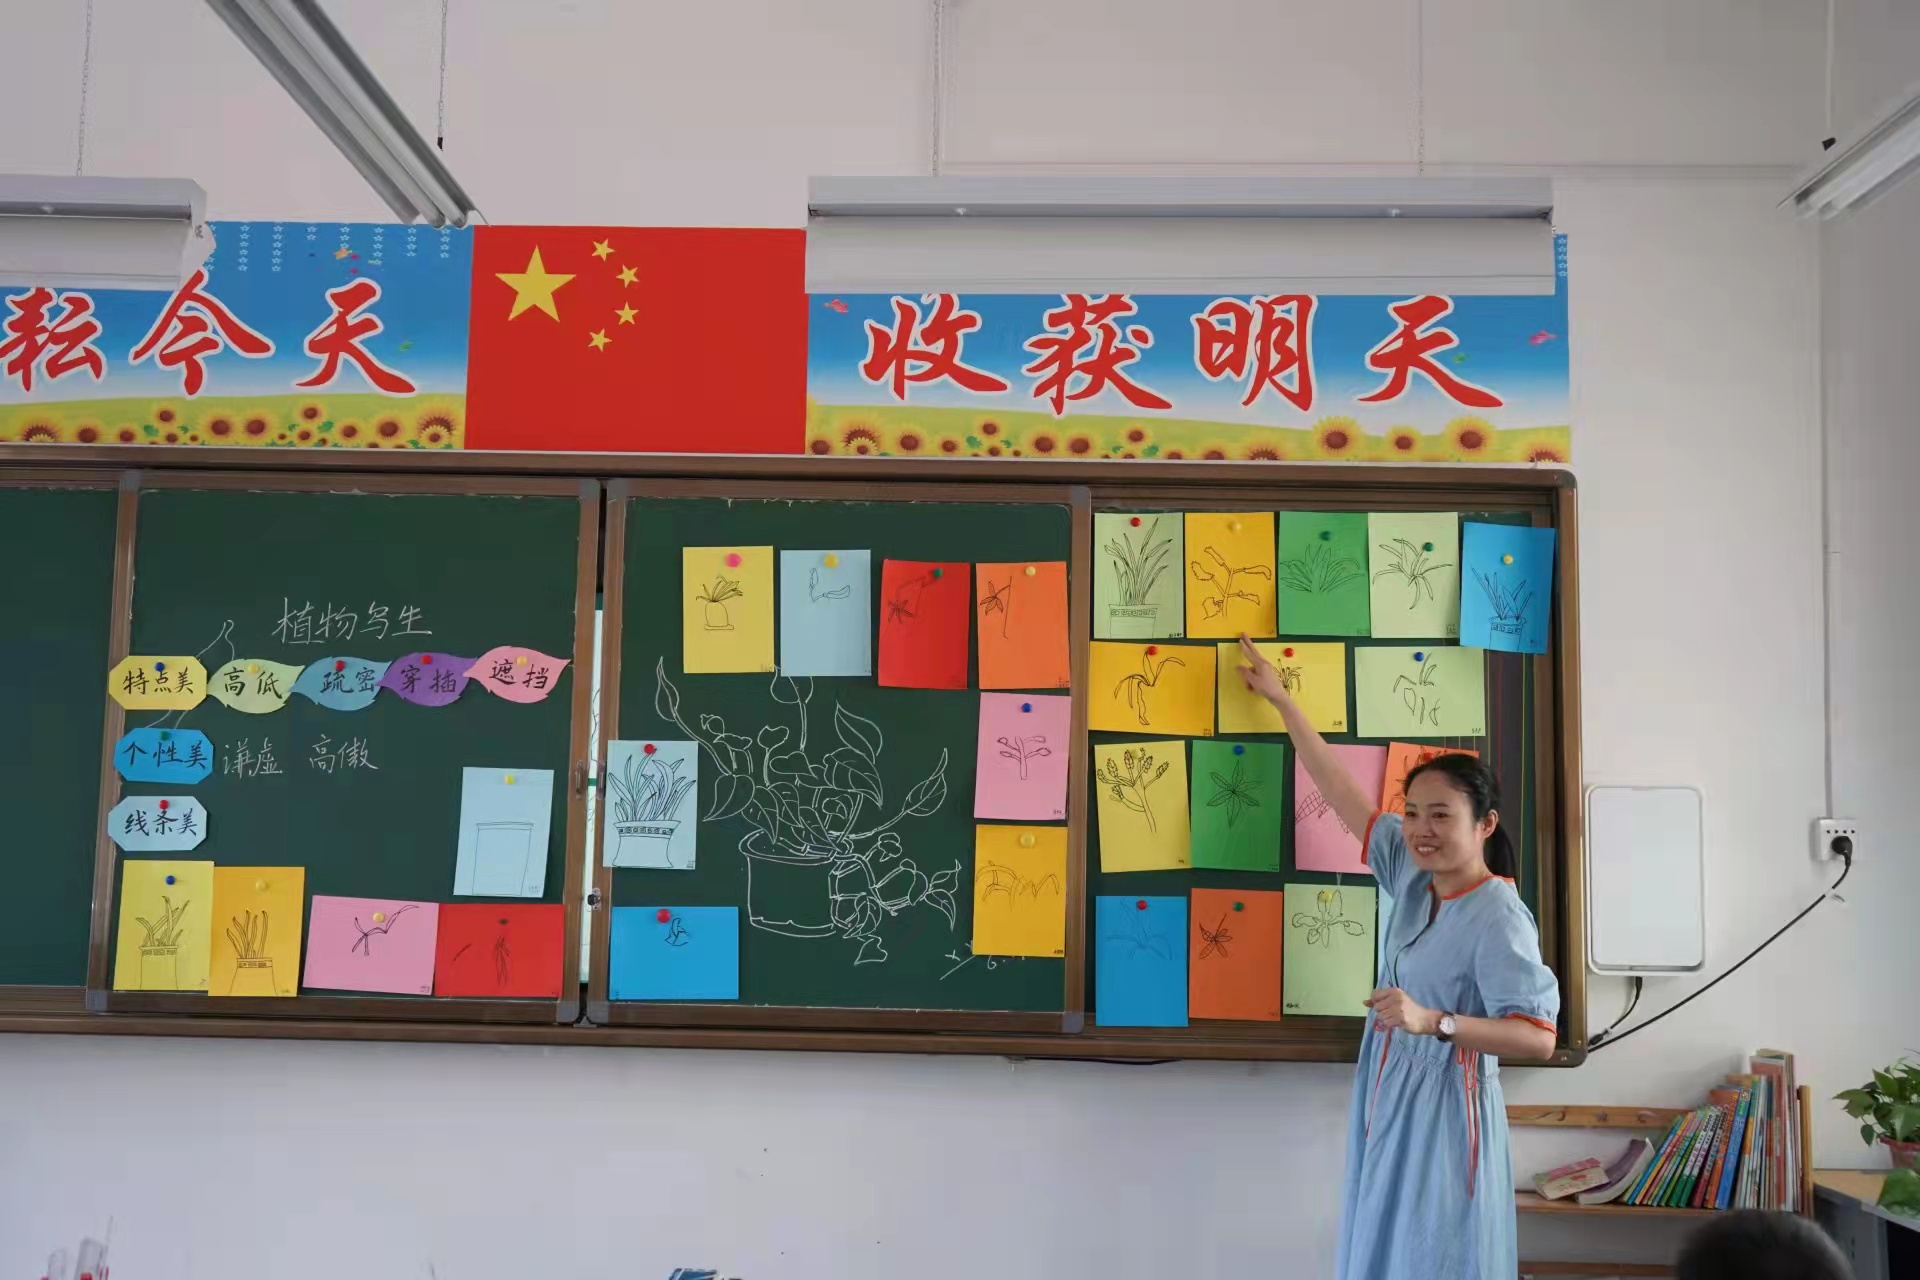 耘今天
收获明天
植物写生
特点美 高低 疏密 穿插 遮挡
个性美 谦虚 高傲
线条美